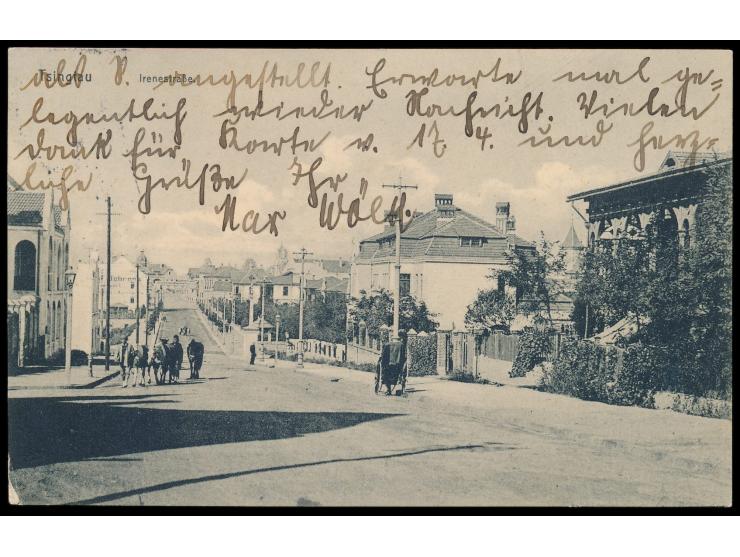 Tsingtau Irenestraße.
als V. angestellt. Erwarte mal ge=
legentlich wieder Nachricht. Vielen
dank für Karte v. 17. 4. und herz=
liche Grüße Ihr
Max Wölk.